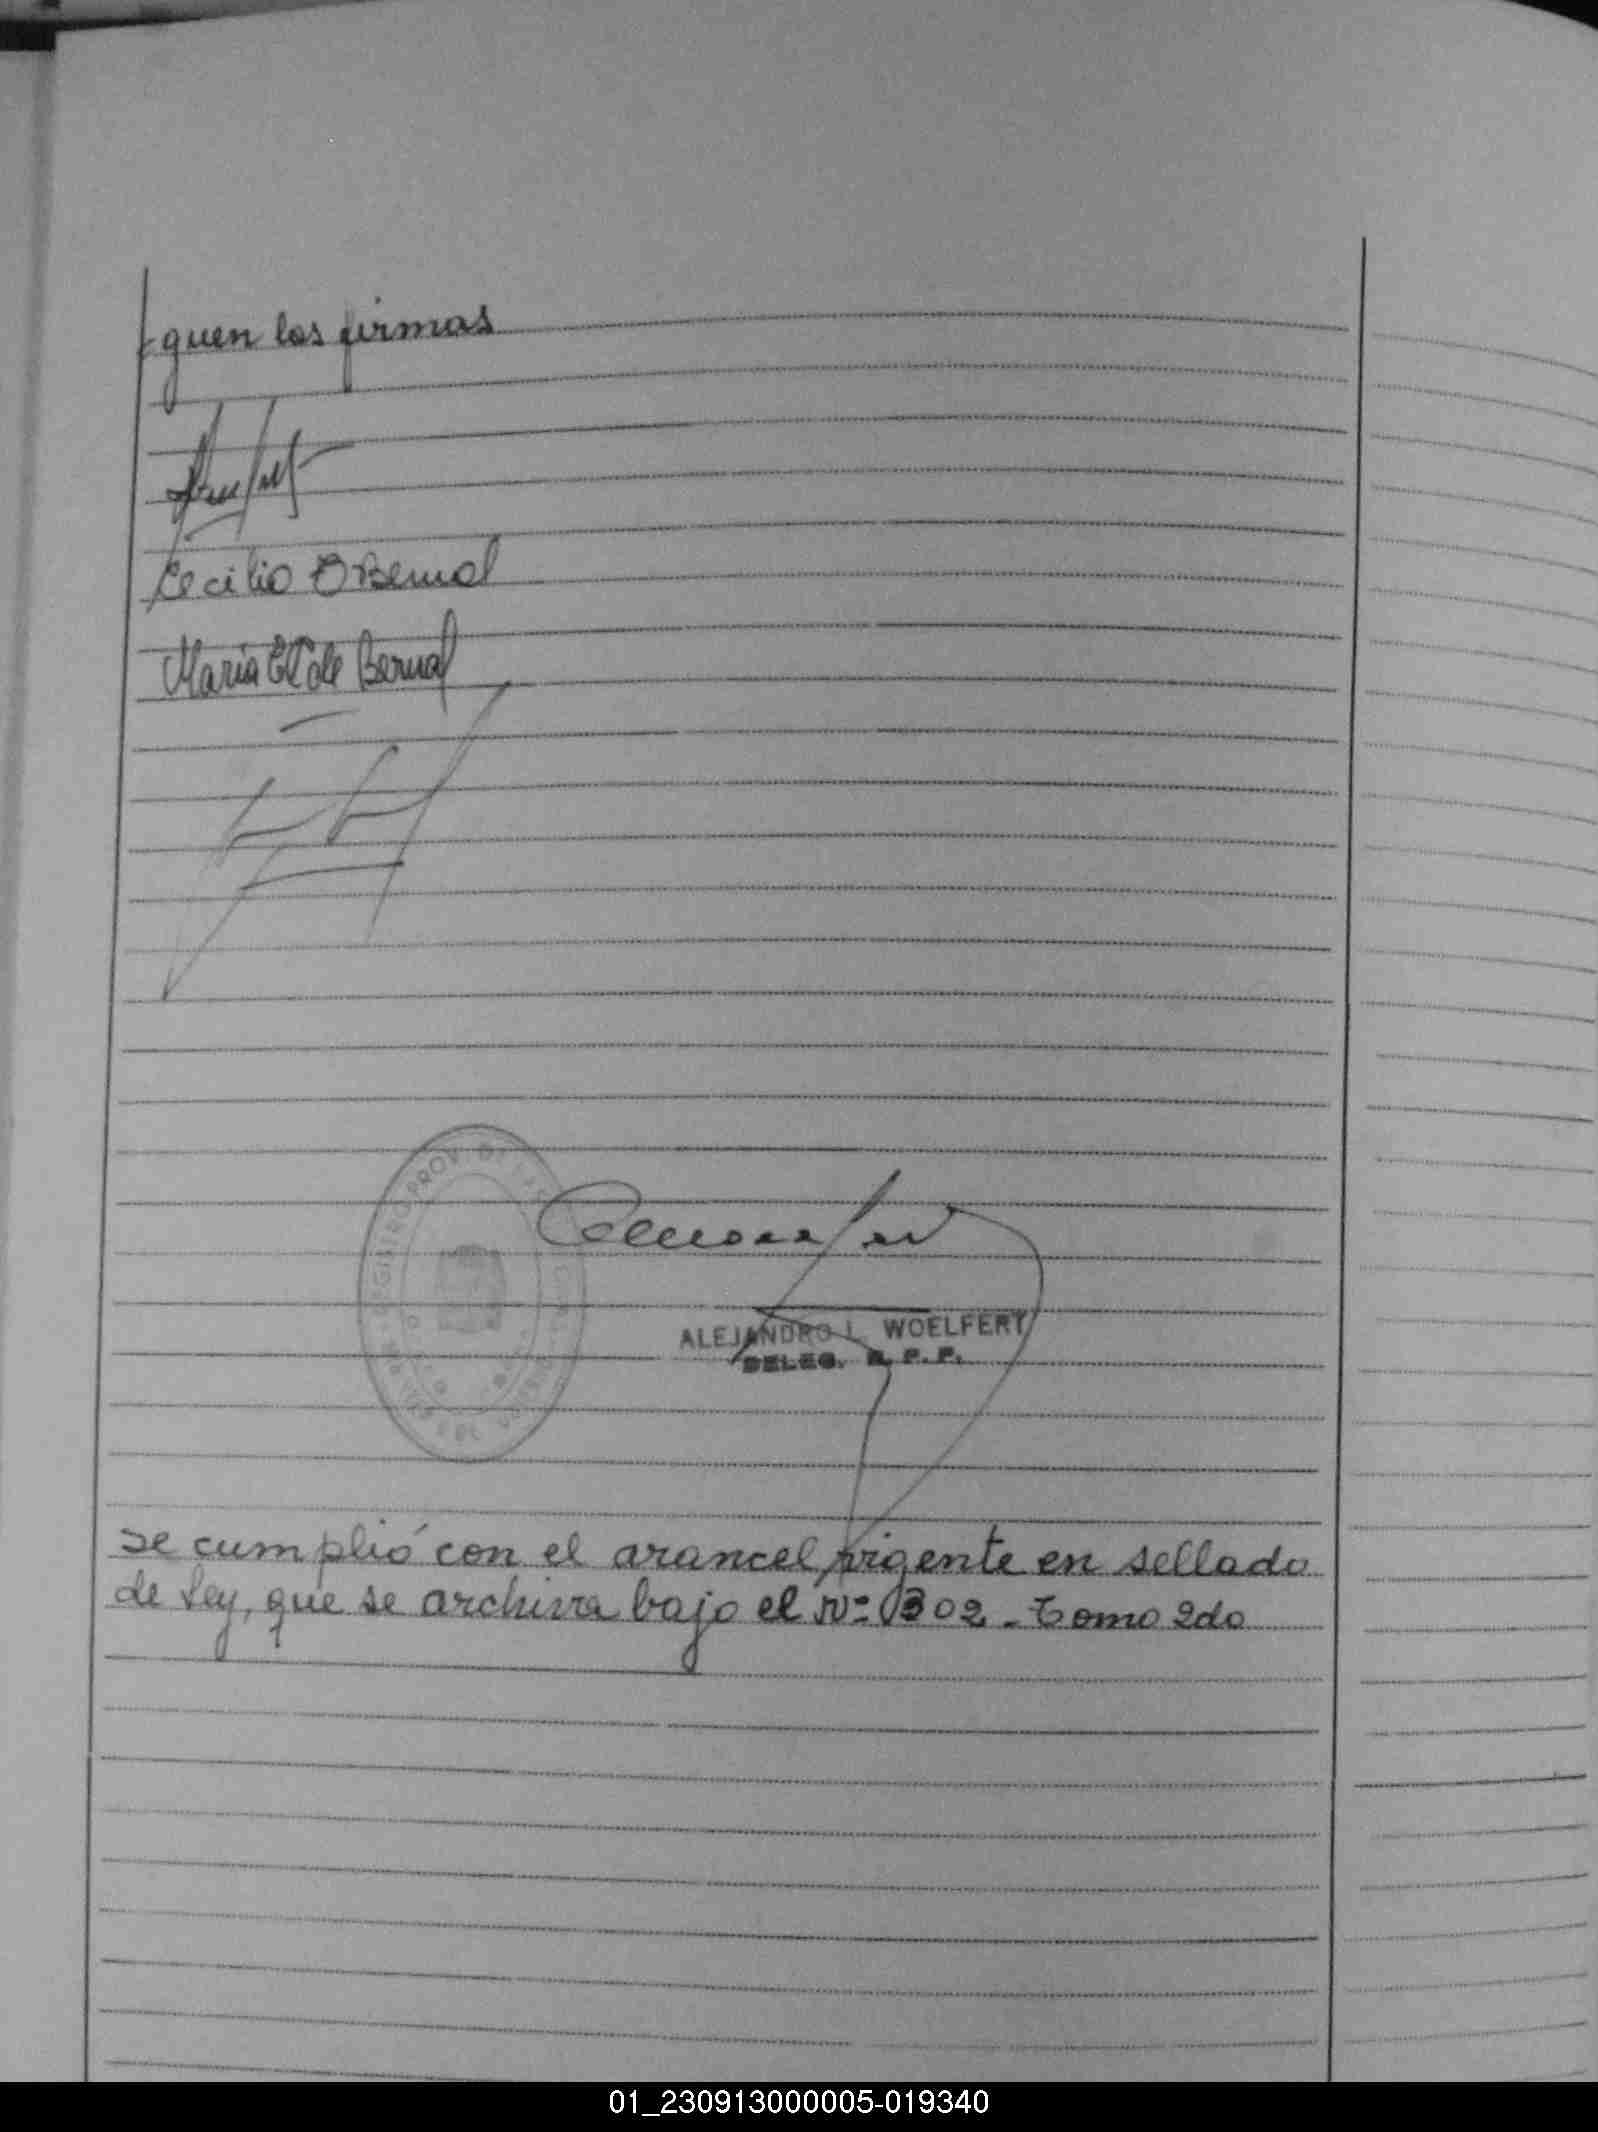 guen las firmas
Cecilio O Bernal
Maria E T de Bernal
REGISTRO PROV. DE LAS
ALEJANDRO L. WOELFERT
DELEG. R. P. P.
se cumplió con el arancel vigente en sellado
de Ley, que se archiva bajo el Nº 302 - Tomo 2do
01_230913000005-019340